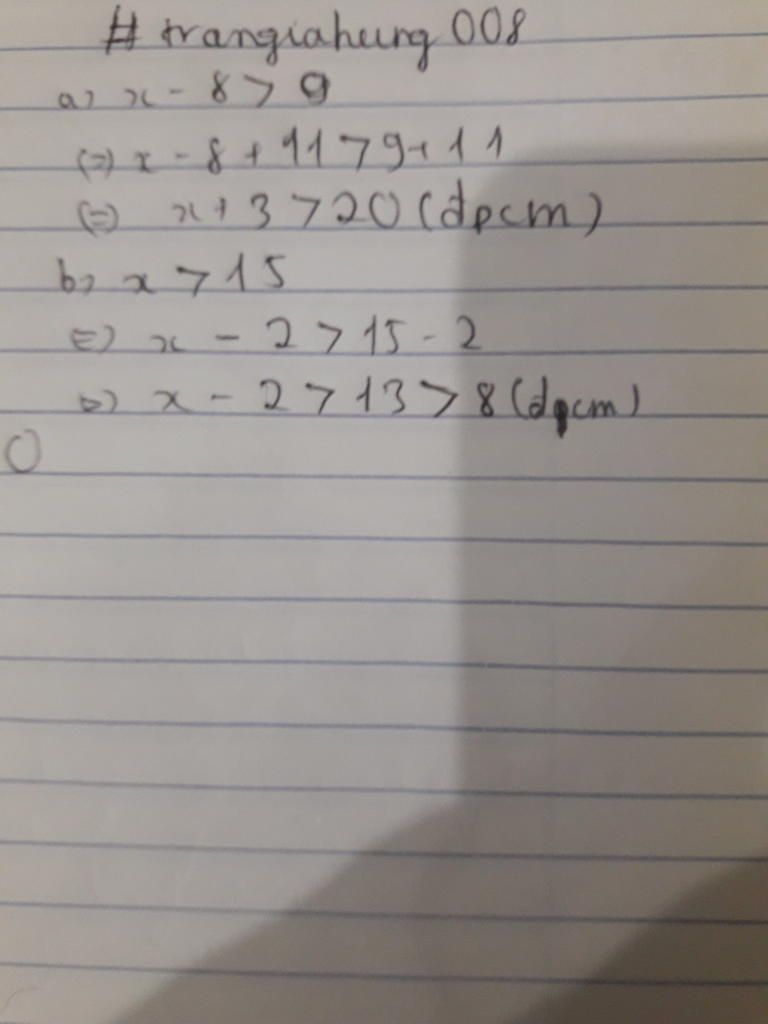 # trangiahung 008
a) x - 8 > 9
(=) x - 8 + 11 > 9 + 11
(=) x + 3 > 20 (dpcm)
b) x > 15
(=) x - 2 > 15 - 2
=) x - 2 > 13 > 8 (dpcm)